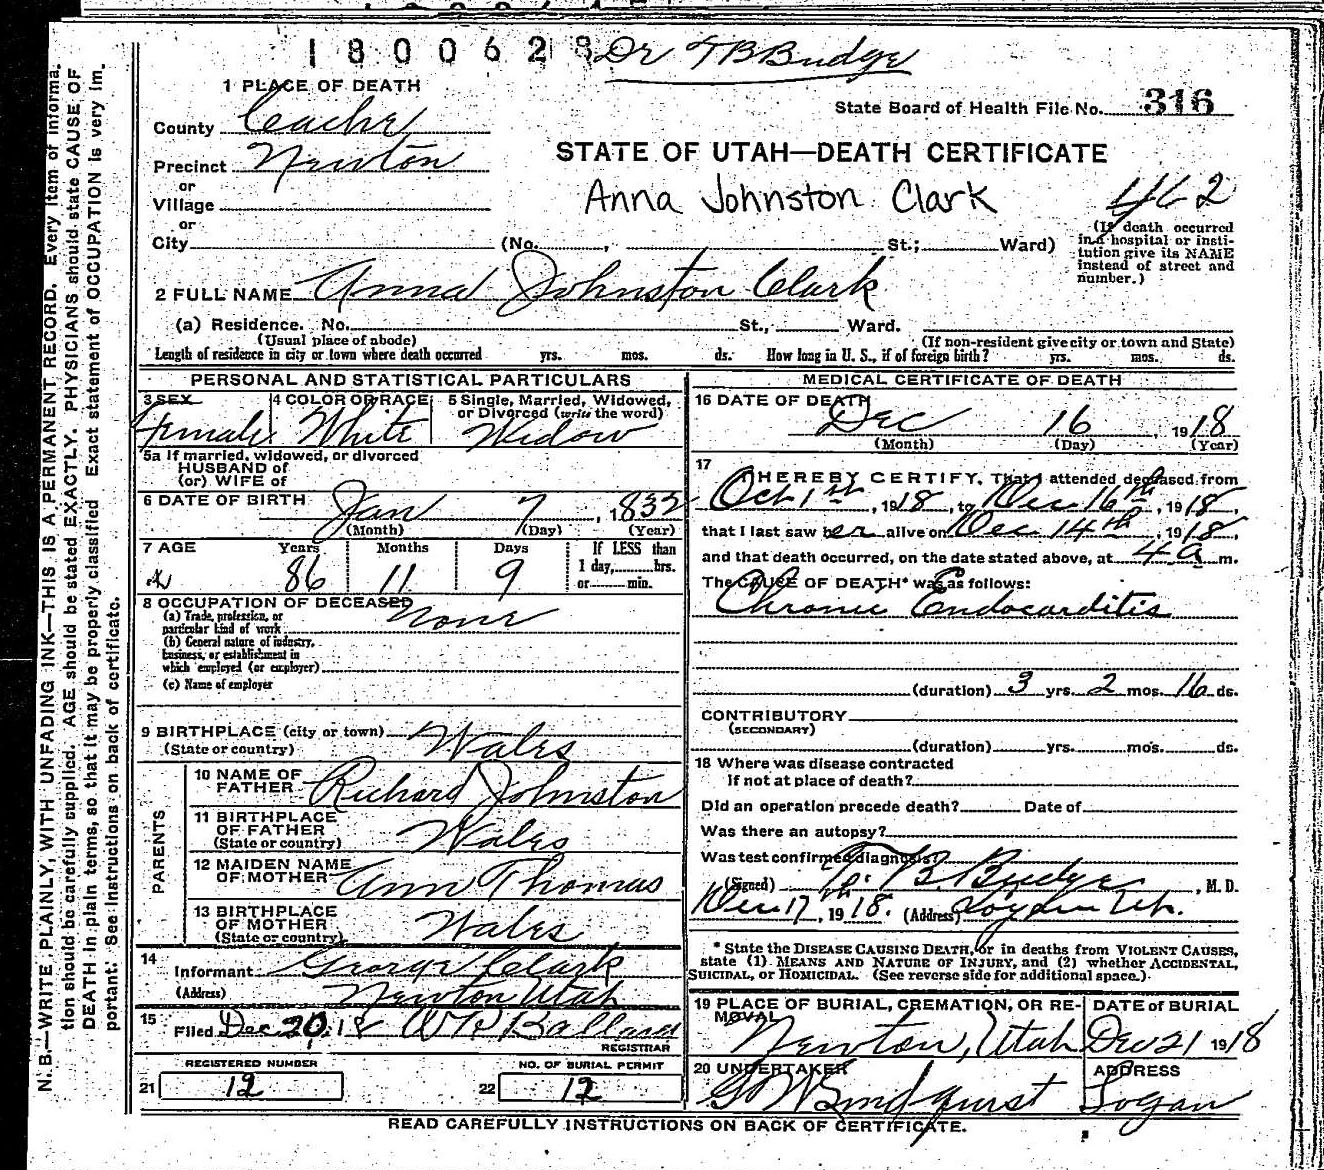 1800628 Dr TB Budge
1 PLACE OF DEATH
State Board of Health File No. 316
County Cache
STATE OF UTAH—DEATH CERTIFICATE
Precinct Newton
or
Village
Anna Johnston Clark 462
or
City (No. , St.; Ward)
(If death occurred in a hospital or insti-
tution give its NAME
instead of street and
number.)
2 FULL NAME Anna Johnston Clark
(a) Residence. No. St., Ward.
(Usual place of abode) (If non-resident give city or town and State)
Length of residence in city or town where death occurred yrs. mos. ds. How long in U. S., if of foreign birth? yrs. mos. ds.
PERSONAL AND STATISTICAL PARTICULARS
3 SEX 4 COLOR OR RACE 5 Single, Married, Widowed,
or Divorced (write the word)
Female White Widow
5a If married, widowed, or divorced
HUSBAND of
(or) WIFE of
6 DATE OF BIRTH Jan 7, 1832
(Month) (Day) (Year)
7 AGE Years Months Days If LESS than
1 day, hrs.
or min.
86 11 9
8 OCCUPATION OF DECEASED
(a) Trade, profession, or
particular kind of work None
(b) General nature of industry,
business, or establishment in
which employed (or employer)
(c) Name of employer
9 BIRTHPLACE (city or town) Wales
(State or country)
PARENTS
10 NAME OF
FATHER Richard Johnston
11 BIRTHPLACE
OF FATHER Wales
(State or country)
12 MAIDEN NAME
OF MOTHER Ann Thomas
13 BIRTHPLACE
OF MOTHER Wales
(State or country)
14
Informant George Clark
(Address) Newton Utah
15
Filed Dec 20, 18 Ballard
REGISTRAR
REGISTERED NUMBER NO. OF BURIAL PERMIT
21 12 22 12
MEDICAL CERTIFICATE OF DEATH
16 DATE OF DEATH
Dec 16, 1918
(Month) (Day) (Year)
17
I HEREBY CERTIFY, That I attended deceased from
Oct 1st, 1918, to Dec. 16th, 1918,
that I last saw her alive on Dec 14th, 1918,
and that death occurred, on the date stated above, at 4 a m.
The CAUSE OF DEATH* was as follows:
Chronic Endocarditis
(duration) 3 yrs. 2 mos. 16 ds.
CONTRIBUTORY
(SECONDARY)
(duration) yrs. mos. ds.
18 Where was disease contracted
if not at place of death?
Did an operation precede death? Date of
Was there an autopsy?
What test confirmed diagnosis?
(Signed) T. B. Budge, M. D.
Dec 17th, 1918. (Address)
* State the DISEASE CAUSING DEATH, or in deaths from VIOLENT CAUSES,
state (1) MEANS AND NATURE OF INJURY, and (2) whether ACCIDENTAL,
SUICIDAL, or HOMICIDAL. (See reverse side for additional space.)
19 PLACE OF BURIAL, CREMATION, OR RE-
MOVAL DATE of BURIAL
Newton, Utah Dec 21 1918
20 UNDERTAKER ADDRESS
Lindquist Logan
READ CAREFULLY INSTRUCTIONS ON BACK OF CERTIFICATE.
N. B.—WRITE PLAINLY, WITH UNFADING INK—THIS IS A PERMANENT RECORD. Every item of informa-
tion should be carefully supplied. AGE should be stated EXACTLY. PHYSICIANS should state CAUSE OF
DEATH in plain terms, so that it may be properly classified. Exact statement of OCCUPATION is very im-
portant. See instructions on back of certificate.